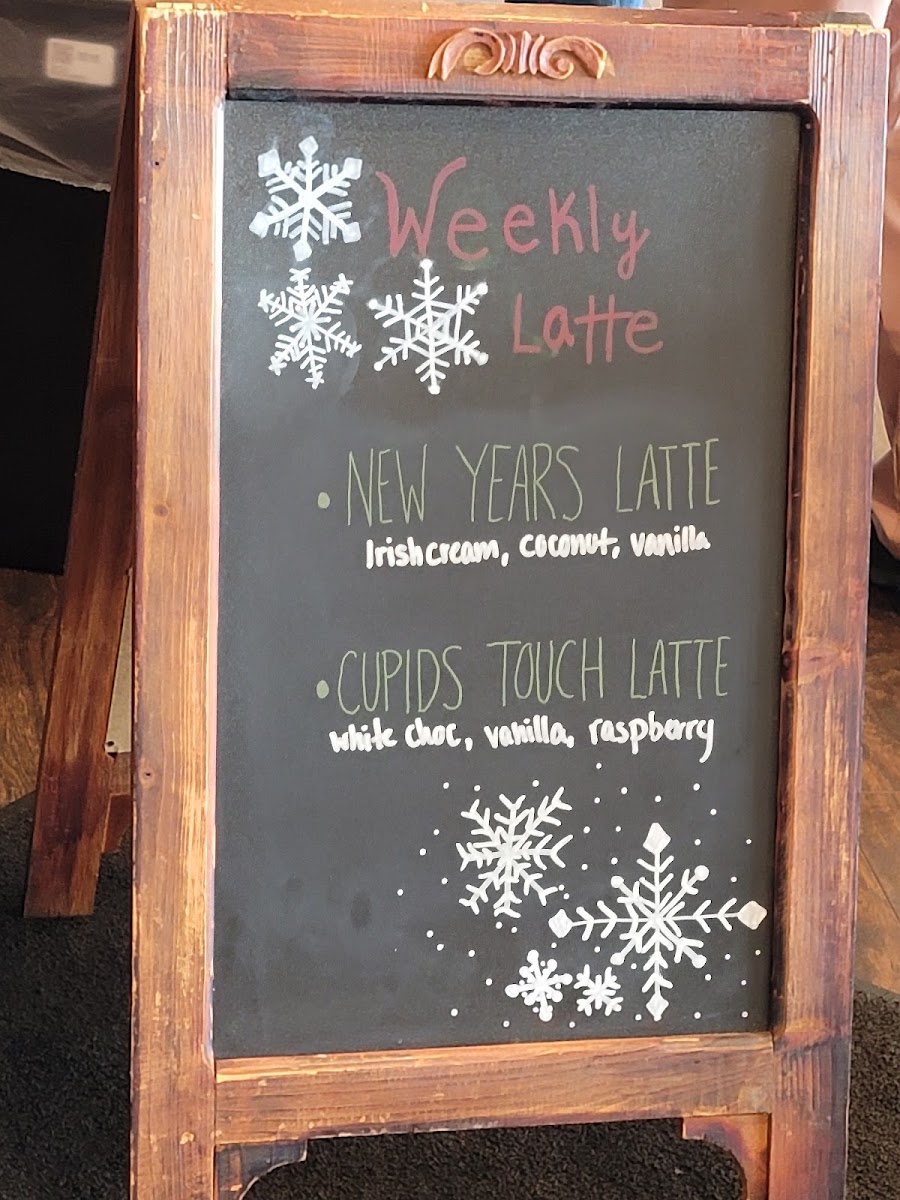 Weekly
Latte
• NEW YEARS LATTE
Irish cream, coconut, vanilla
• CUPIDS TOUCH LATTE
white choc, vanilla, raspberry